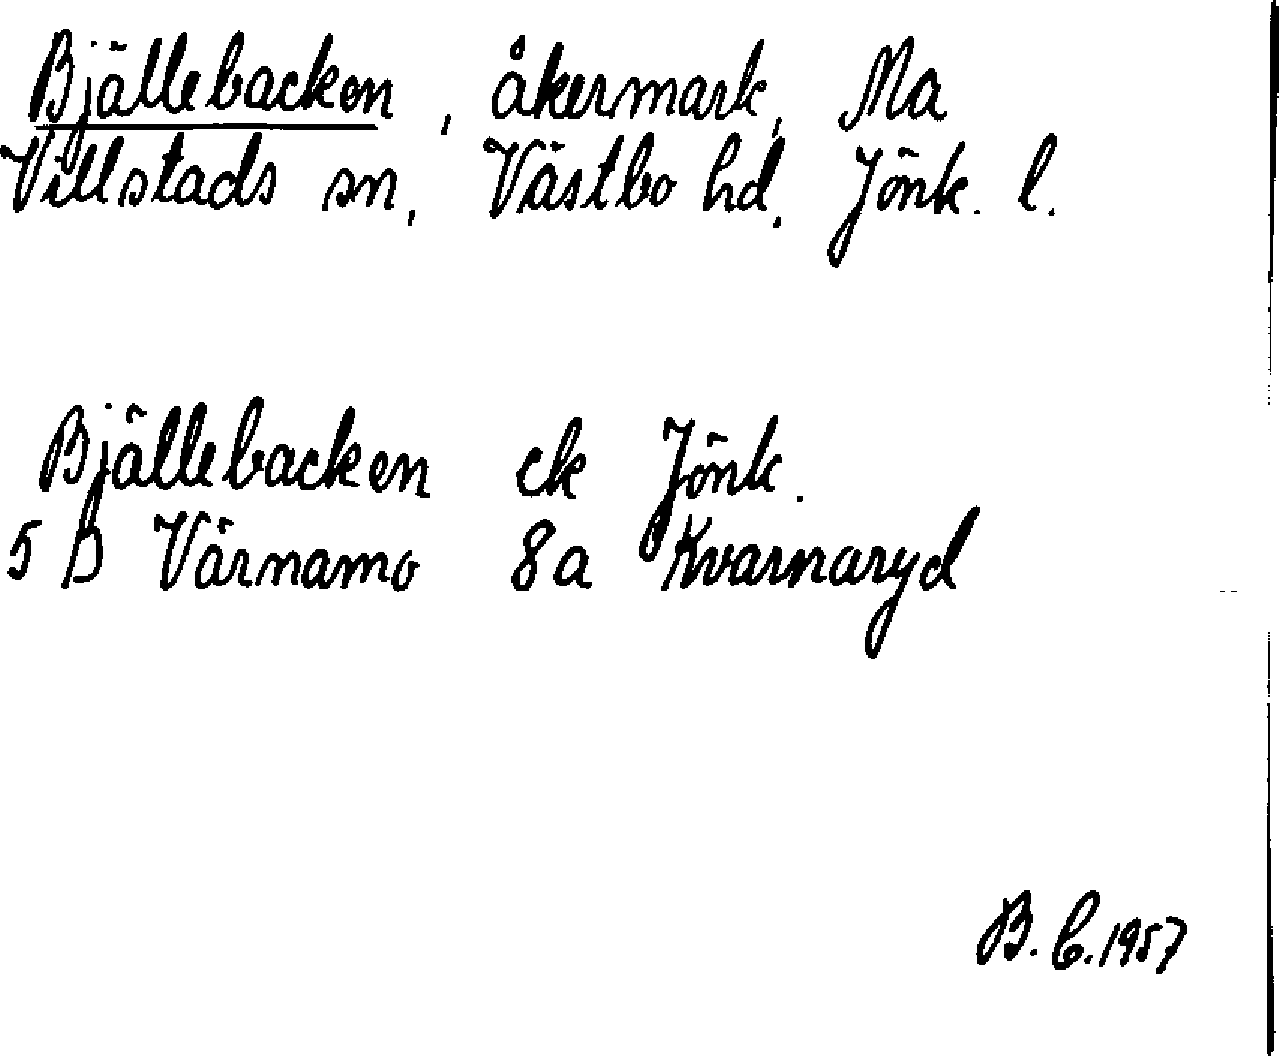 Bjällebacken, åkermark, Ma
Villstads sn, Västbo hd. Jönk. l.
Bjällebacken ek Jönk.
5 D Värnamo 8a Kvarnaryd
B. C. 1957